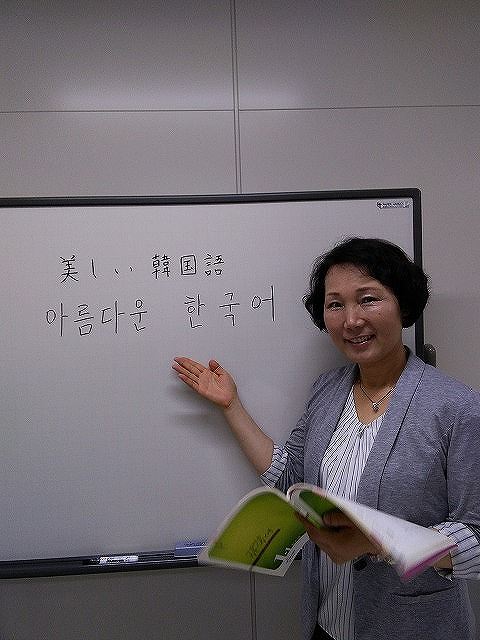 美しい 韓国語
아름다운 한국어